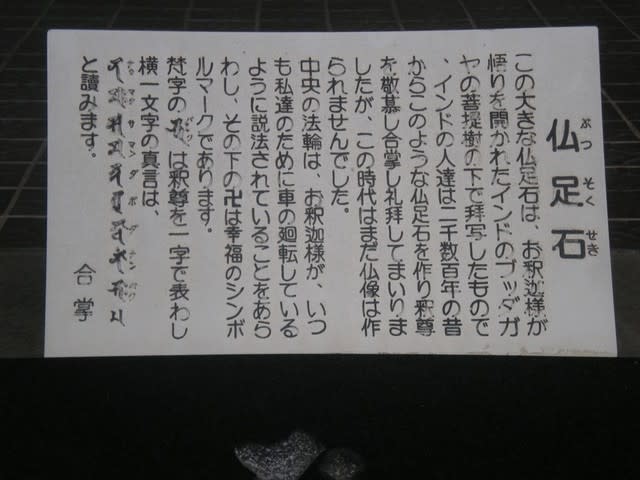 仏足石
ぶっそくせき
この大きな仏足石は、お釈迦様が
悟りを開かれたインドのブッダガ
ヤの菩提樹の下で拝写したもので
、インドの人達は二千数百年の昔
からこのような仏足石を作り釈尊
を敬慕し合掌し礼拝してまいりま
したが、この時代はまだ仏像は作
られませんでした。
中央の法輪は、お釈迦様が、いつ
も私達のために車の廻転している
ように説法されていることをあら
わし、その下の卍は幸福のシンボ
ルマークであります。
梵字の は釈尊を一字で表わし
横一文字の真言は、
ナウマクサマンダボダナンバク
と讀みます。
合掌